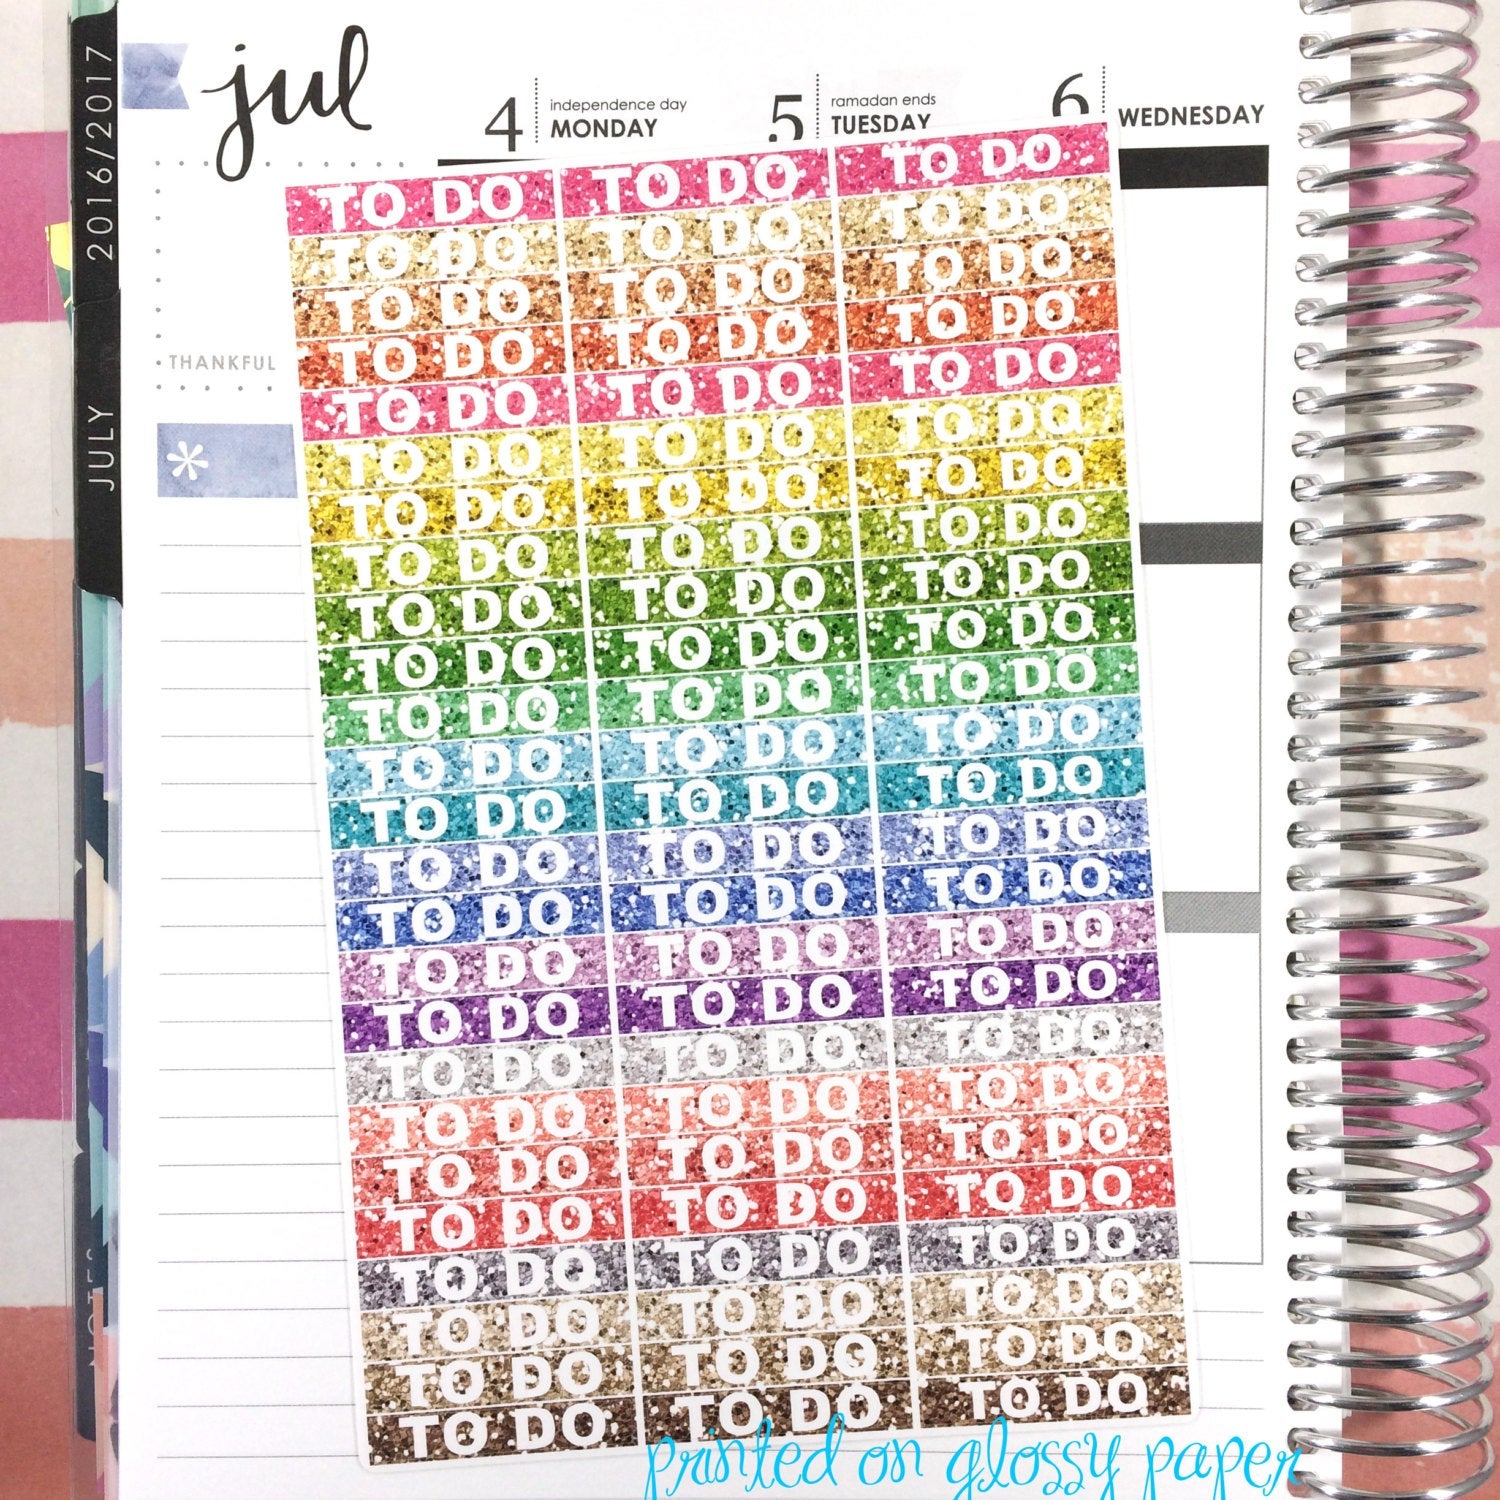 jul
4 independence day MONDAY
5 ramadan ends TUESDAY
6 WEDNESDAY
2016/2017
JULY
THANKFUL
*
TO DO TO DO TO DO
TO DO TO DO TO DO
TO DO TO DO TO DO
TO DO TO DO TO DO
TO DO TO DO TO DO
TO DO TO DO TO DO
TO DO TO DO TO DO
TO DO TO DO TO DO
TO DO TO DO TO DO
TO DO TO DO TO DO
TO DO TO DO TO DO
TO DO TO DO TO DO
TO DO TO DO TO DO
TO DO TO DO TO DO
TO DO TO DO TO DO
TO DO TO DO TO DO
TO DO TO DO TO DO
TO DO TO DO TO DO
TO DO TO DO TO DO
TO DO TO DO TO DO
TO DO TO DO TO DO
TO DO TO DO TO DO
TO DO TO DO TO DO
TO DO TO DO TO DO
TO DO TO DO TO DO
NOTES
printed on glossy paper